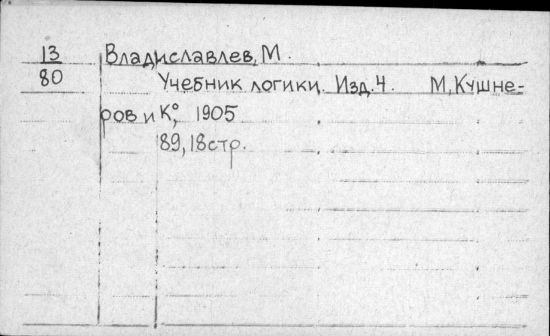 13 Владиславлев, М.
80 Учебник логики. Изд. 4. М, Кушне-
ров и К°, 1905
89, 18 стр.